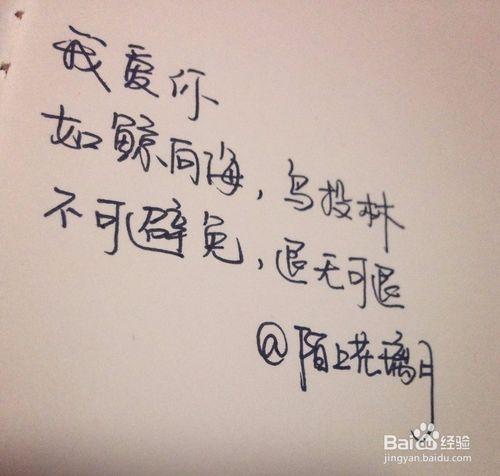 我爱你
如鲸向海，鸟投林
不可避免，退无可退
@陌上花璃月
Baidu经验
jingyan.baidu.com